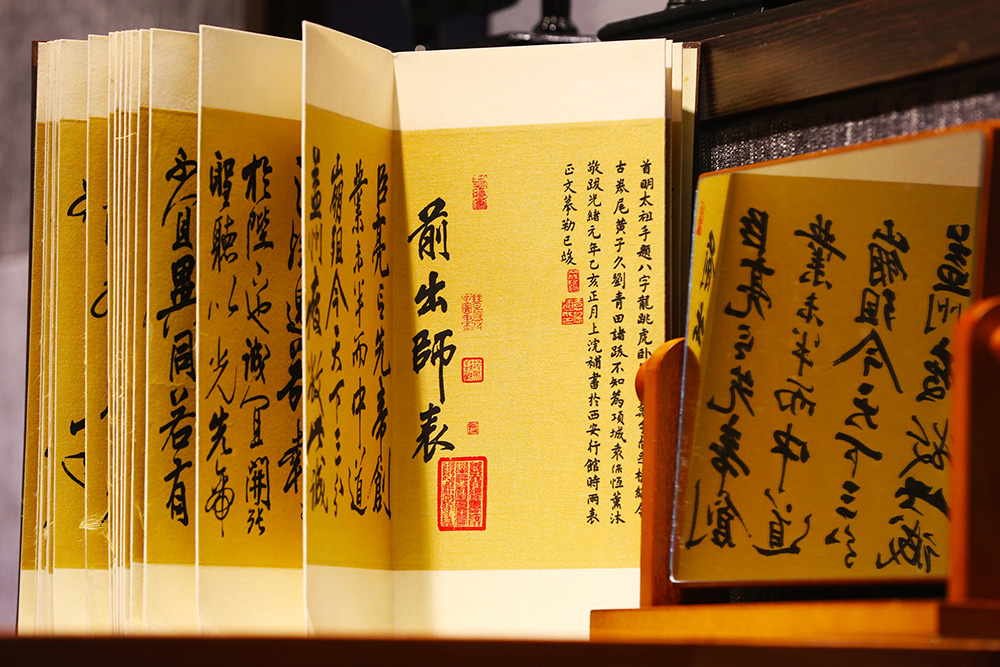 首明太祖手題八字龍跳虎卧
古卷尾黃子久劉青田諸跋不知為項城袁保恆薰沐
敬跋光緒元年乙亥正月上浣補書於西安行館時兩表
正文摹勒已竣
前出師表
臣亮言先帝創
業未半而中道
崩殂今天下三分
益州疲敝此誠
於陛下也誠宜開張
聖聽以光先帝
不宜異同若有
臣亮言先帝創
業未半而中道
崩殂今天下三分
益州疲敝此誠